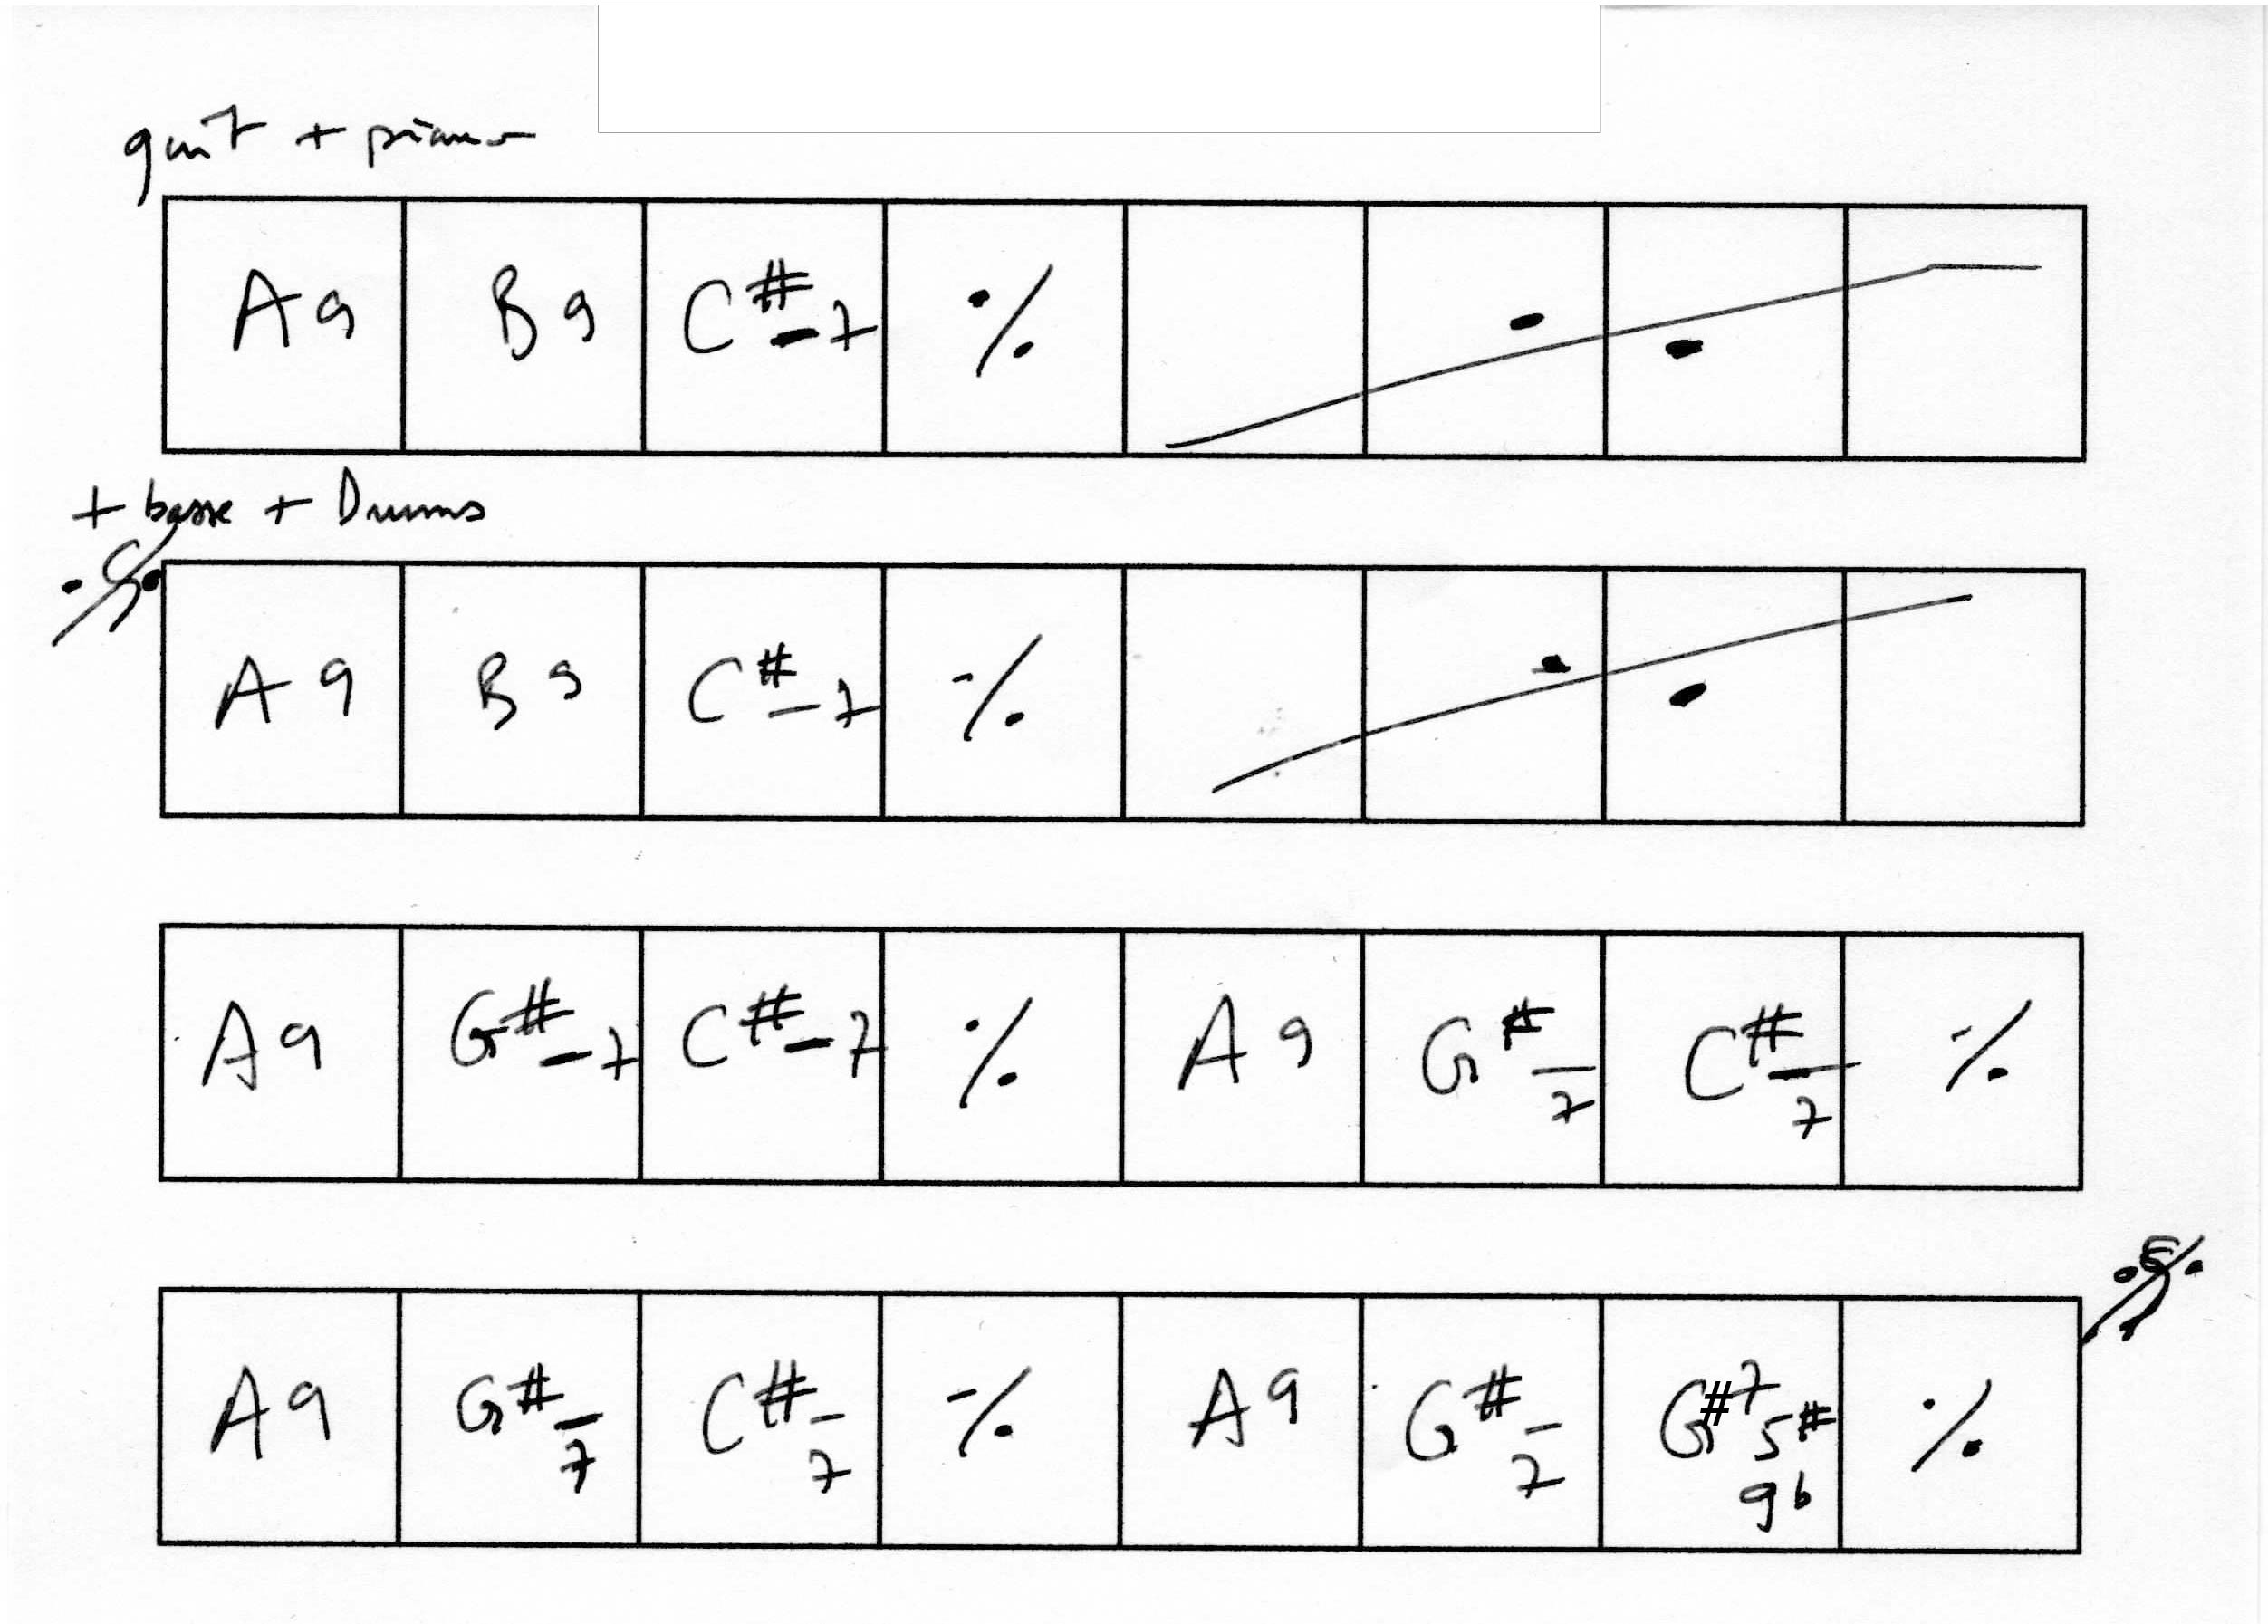 guit + piano
A9 B9 C#-7 %
+ basse + Drums
A9 B9 C#-7 %
A9 G#-7 C#-7 % A9 G#-7 C#-7 %
A9 G#-7 C#-7 % A9 G#-7 G#7 5# 9b %